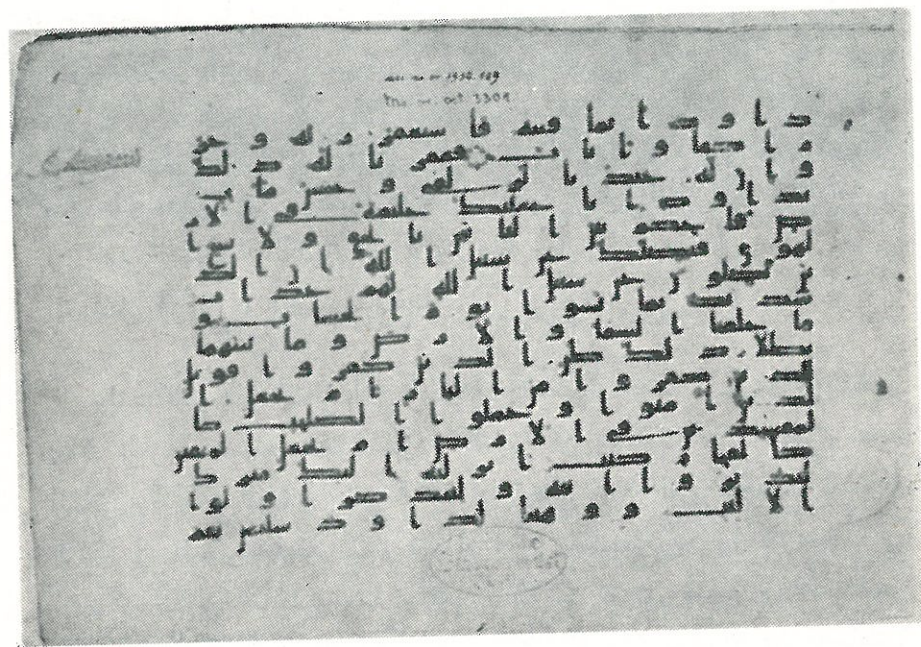 Ms. or. oct.
داود انما فتنه فاستغفر ربه وخر
راكعا واناب فغفرنا له ذلك
وان له عندنا لزلفى وحسن ماب
يداود انا جعلنك خليفة في الار
ض فاحكم بين الناس بالحق ولا تتبع ا
لهوى فيضلك عن سبيل الله ان الذ
ين يضلون عن سبيل الله لهم عذاب
شديد بما نسوا يوم الحساب و
ما خلقنا السما والارض وما بينهما
بطلا ذلك ظن الذين كفروا فويل
للذين كفروا من النار ام نجعل ا
لذين امنوا وعملوا الصلحت كا
لمفسدين في الارض ام نجعل المتقين
كالفجار كتب انزلنه اليك مبرك
ليدبروا ايته وليتذكر اولوا
الالبب ووهبنا لداود سليمن نعم